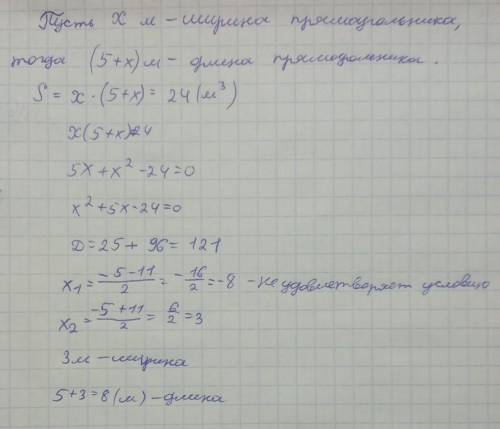 Пусть X м – ширина прямоугольника,
тогда (5+x) м – длина прямоугольника.
S = x · (5+x) = 24 (м³)
x(5+x)=24
5x + x² - 24 = 0
x² + 5x - 24 = 0
D = 25 + 96 = 121
x₁ = (-5-11)/2 = -16/2 = -8 - не удовлетворяет условию
x₂ = (-5+11)/2 = 6/2 = 3
3м – ширина
5+3=8 (м) – длина